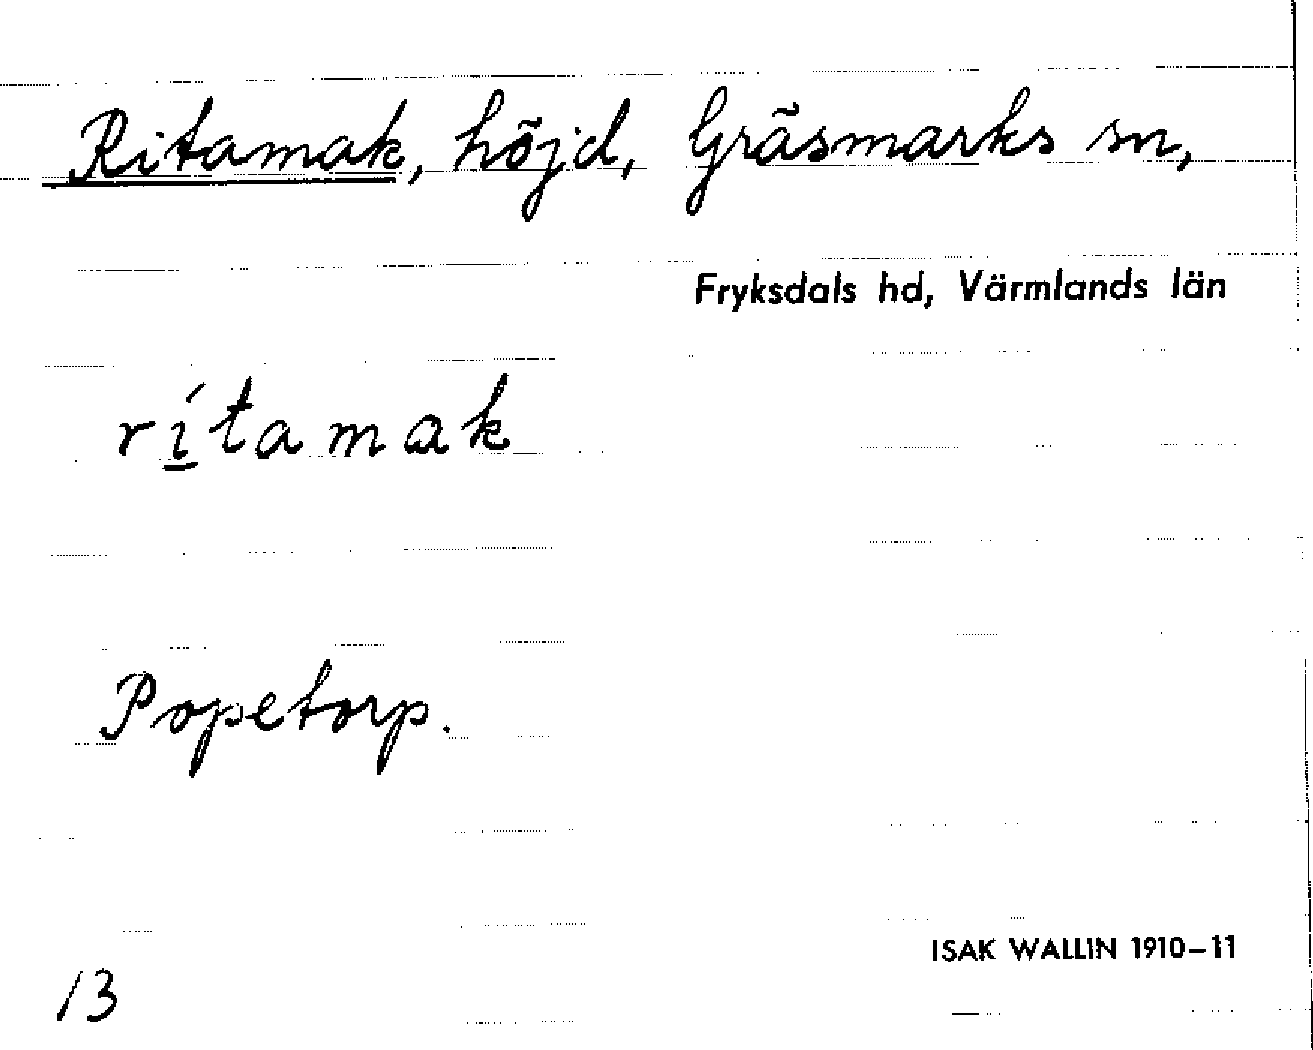 Ritamak, höjd, Gräsmarks sn,
Fryksdals hd, Värmlands län
rí̱tamak
Popetorp.
ISAK WALLIN 1910–11
13